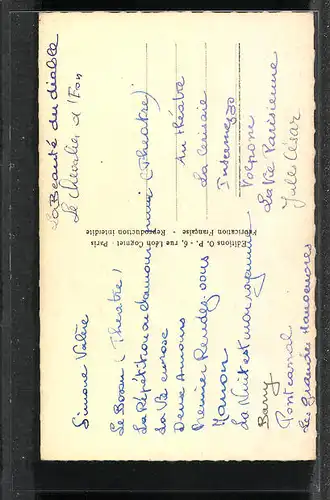 Simone Valère
Le Bossu (Théatre)
La Répétition ou l'amour puni (Theatre)
La Vie en rose
Deux Amours
Premier Rendez-vous
Manon
La Nuit est mon royaume
Barry
Pontcarral
Les Grandes Manoeuvres
La Beauté du diable
Le Chevalier d'Eon
Au théatre
La Cerisaie
Intermezzo
Volpone
La Vie Parisienne
Jules César
Editions O. P. - 6, rue Léon Cogniet - Paris
Fabrication Française - Reproduction interdite